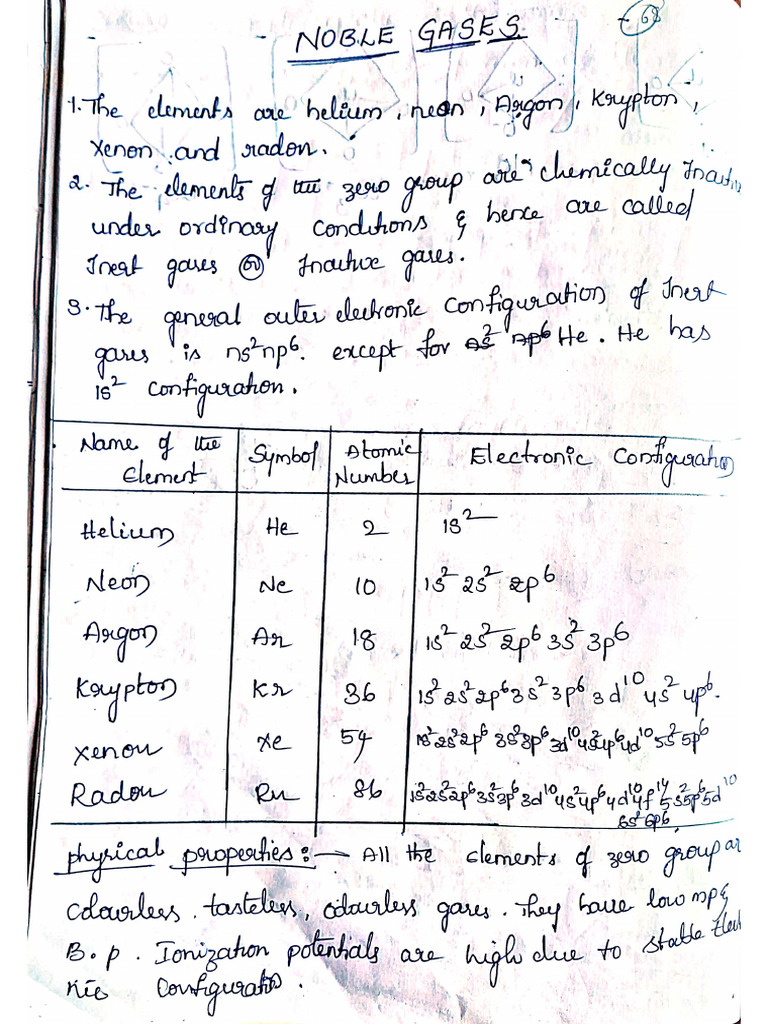 NOBLE GASES
68
1. The elements are helium, neon, Argon, Krypton,
Xenon and radon.
2. The elements of the zero group are chemically Inactiv
under ordinary conditions & hence are called
Inert gases (or) Inactive gases.
3. The general outer electronic configuration of Inert
gases is ns²np⁶. except for He. He has
1s² configuration.
Name of the Element | Symbol | Atomic Number | Electronic Configuration
Helium | He | 2 | 1s²
Neon | Ne | 10 | 1s² 2s² 2p⁶
Argon | Ar | 18 | 1s² 2s² 2p⁶ 3s² 3p⁶
Krypton | Kr | 36 | 1s² 2s² 2p⁶ 3s² 3p⁶ 3d¹⁰ 4s² 4p⁶.
Xenon | Xe | 54 | 1s² 2s² 2p⁶ 3s² 3p⁶ 3d¹⁰ 4s² 4p⁶ 4d¹⁰ 5s² 5p⁶
Radon | Rn | 86 | 1s² 2s² 2p⁶ 3s² 3p⁶ 3d¹⁰ 4s² 4p⁶ 4d¹⁰ 4f¹⁴ 5s² 5p⁶ 5d¹⁰
6s² 6p⁶.
physical properties :- → All the elements of zero group ar
Colourless, tasteless, odourless gases. They have low mp &
B.p. Ionization potentials are high due to stable Elect
ronic Configuration.